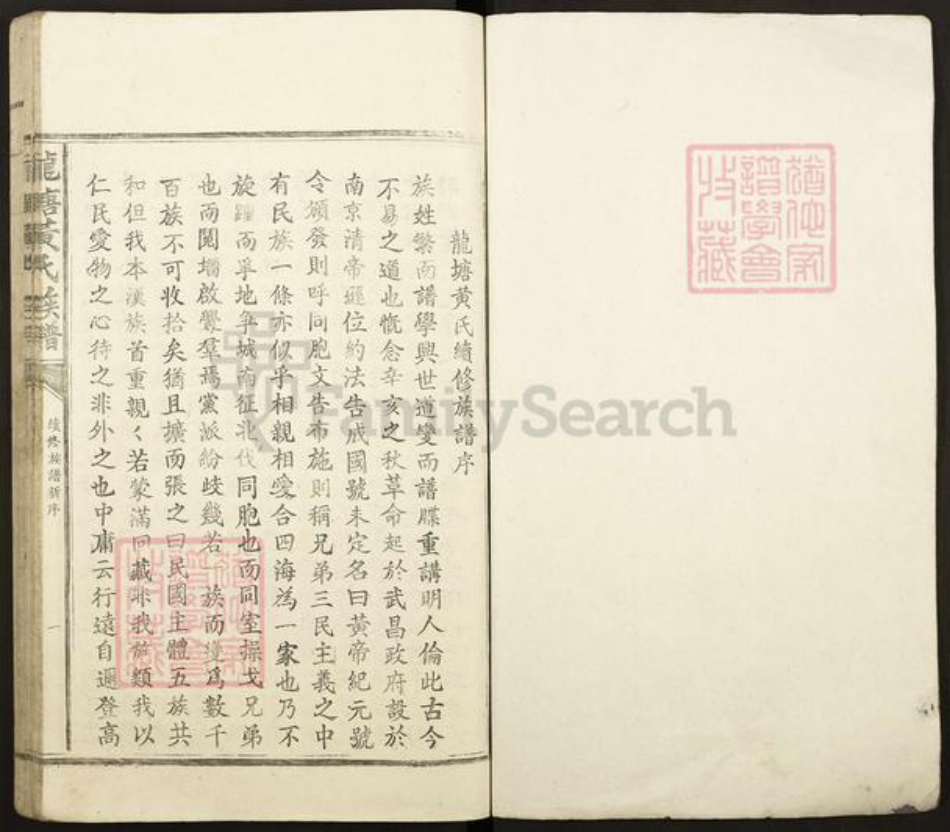 龍塘黄氏續修族譜序
族姓繁而譜學興世道變而譜牒重講明人倫此古今
不易之道也慨念辛亥之秋革命起於武昌政府設於
南京清帝遜位約法告成國號未定名曰黄帝紀元號
令頒發則呼同胞文告布施則稱兄弟三民主義之中
有民族一條亦似乎相親相愛合四海為一家也乃不
旋踵而爭地争城南征北伐同胞也而同室操戈兄弟
也而鬩墻啟釁羣焉黨派紛歧幾若一族而變為數千
百族不可收拾矣猶且擴而張之曰民國主體五族共
和但我本漢族首重親〱若蒙滿回藏非我族類我以
仁民愛物之心待之非外之也中庸云行遠自邇登高
龍塘黄氏族譜
續修族譜新序
一
猶他家
譜學會
收藏
FamilySearch